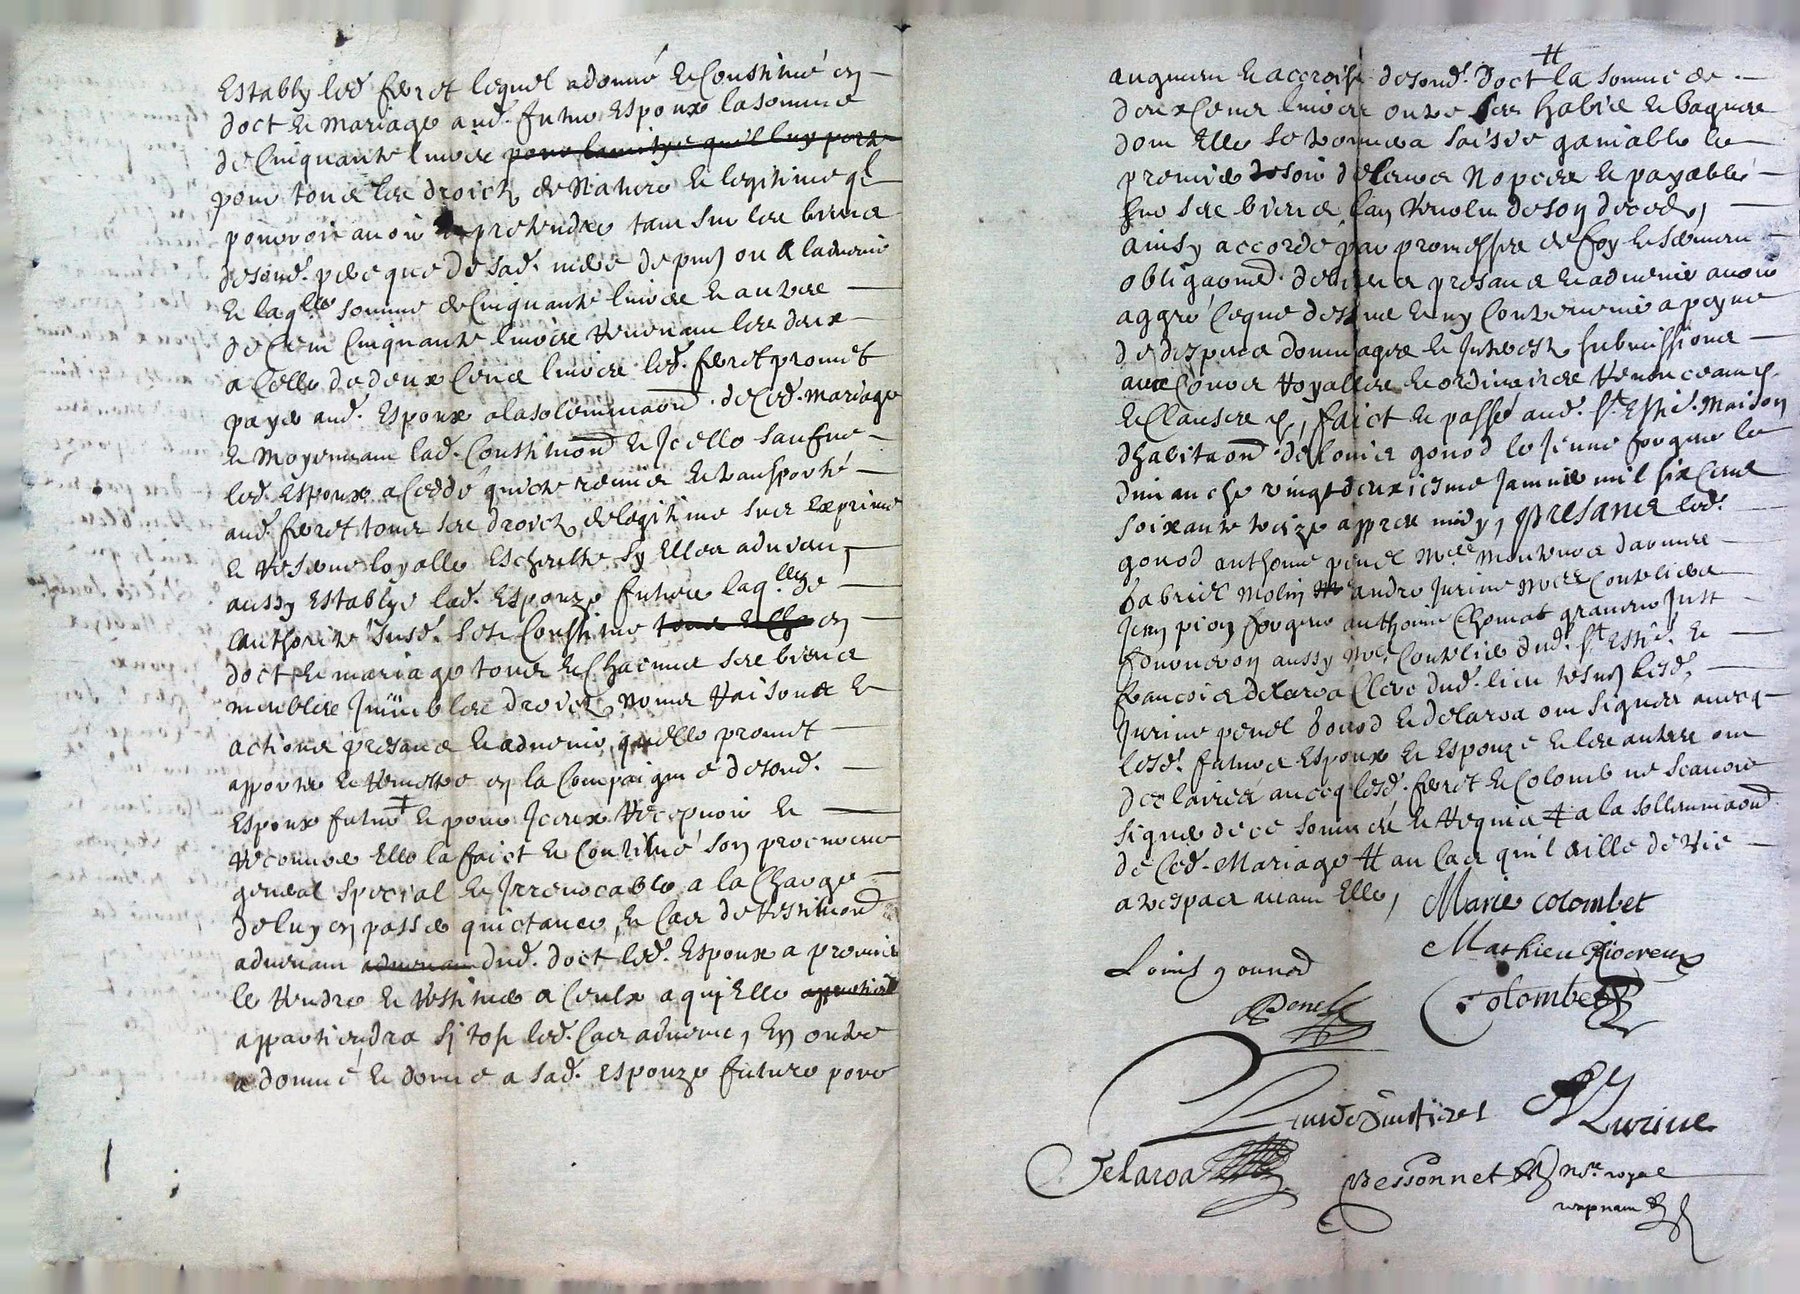 Estably led. feret lequel a donné et Constitué en
doct et mariage aud. futur Espoux la somme
de Cinquante livres pour lamitye quil luy porte
pour tous les droictz de Nature et legitime ql
pouvoit avoir et pretendre tant sur les biens
desond. pere que de sad. mere de puis ou a ladvenir
et laqlle somme de Cinquante livres et autre
de Cent Cinquante livres revenant les deux
a Celle de deux Cens livres led. feret promet
payer aud. Espoux a la solemnaond. de Ced. mariage
et Moyennant lad. Constitaond et Icelle sauf ne
led. Espoux a Ceddé quicté remis et transporté
aud. feret tous ses droictz de legitime sus exprimé
et reserve loyalle Escheutte sy Elle advenoit,
aussy Establye lad. Espouze future laqlle de
lauthorité susd. sest Constitué tous et Ch en
doct et mariage tous et Chacuns ses biens
meubles Immeubles droictz noms raisons et
actions presans et advenir, quelle promet
apporter et remettre en la Compaignie desond.
Espoux futur ‡ et pour Iceux recepvoir et
recouvrer Elle la faict et Constitué son procureur
general special et Irrevocable a la Charge
de luy en passer quictance, et Cas de restituond
advenant advenant dud. doct led. Espoux a promis
le rendre et restituer a Ceulx a qui Elle appartien
appartiendra sj tost led. Cas advenu, En outre
a donné et donne a sad. espouze future pour
augment et accroist desond. doct ⧺ la somme de
deux Cens livres outre ses habis et bagues
dont Elle se trouvera saisie ganiable le
premier de soir de leurs Nopces et payable
sur ses biens lan revolu de son deced,
ainsy accordé par promesses de foy et serment
obligaond. de biens presans et advenir avoir
aggré Ceque dessus et ny Contrevenir a peyne
de despens dommages et Interestz submissions
aux Cours royalles et ordinaires renonceaons.
et Clauses &, faict et passé aud. St Estie. Maison
dhabitaond. de louis gonod le Jeune forgeur le
dimanche vingt deuxiesme Janvier mil six Cens
soixante treize appres midy, presans led.
gonod anthoine penel Mre Monteur darmes
gabriel Molin andre Jurine Mre Coutelier
Jean pion forgeur anthoine Chomat graveur Just
fourneron aussy Mre Coutelier dud. St Estie. et
francois delaroa Clerc dud. lieu tesmz lesd.
Jurine penel gonod et delaroa ont signes avecq
lesd. futurs Espoux et Espouze et les autres ont
declaires avecq lesd. feret et Colomb ne scavoir
signer de ce sommés et requis ‡ a la sollemnaond
de Ced. Mariage ⧺ au Cas quil aille de vie
a trespas avant Elle,
Marie colombet
Mathieu
Louis gounod
Penel
Colombet
Jurine
Delaroa
Bessonnet Nre royal